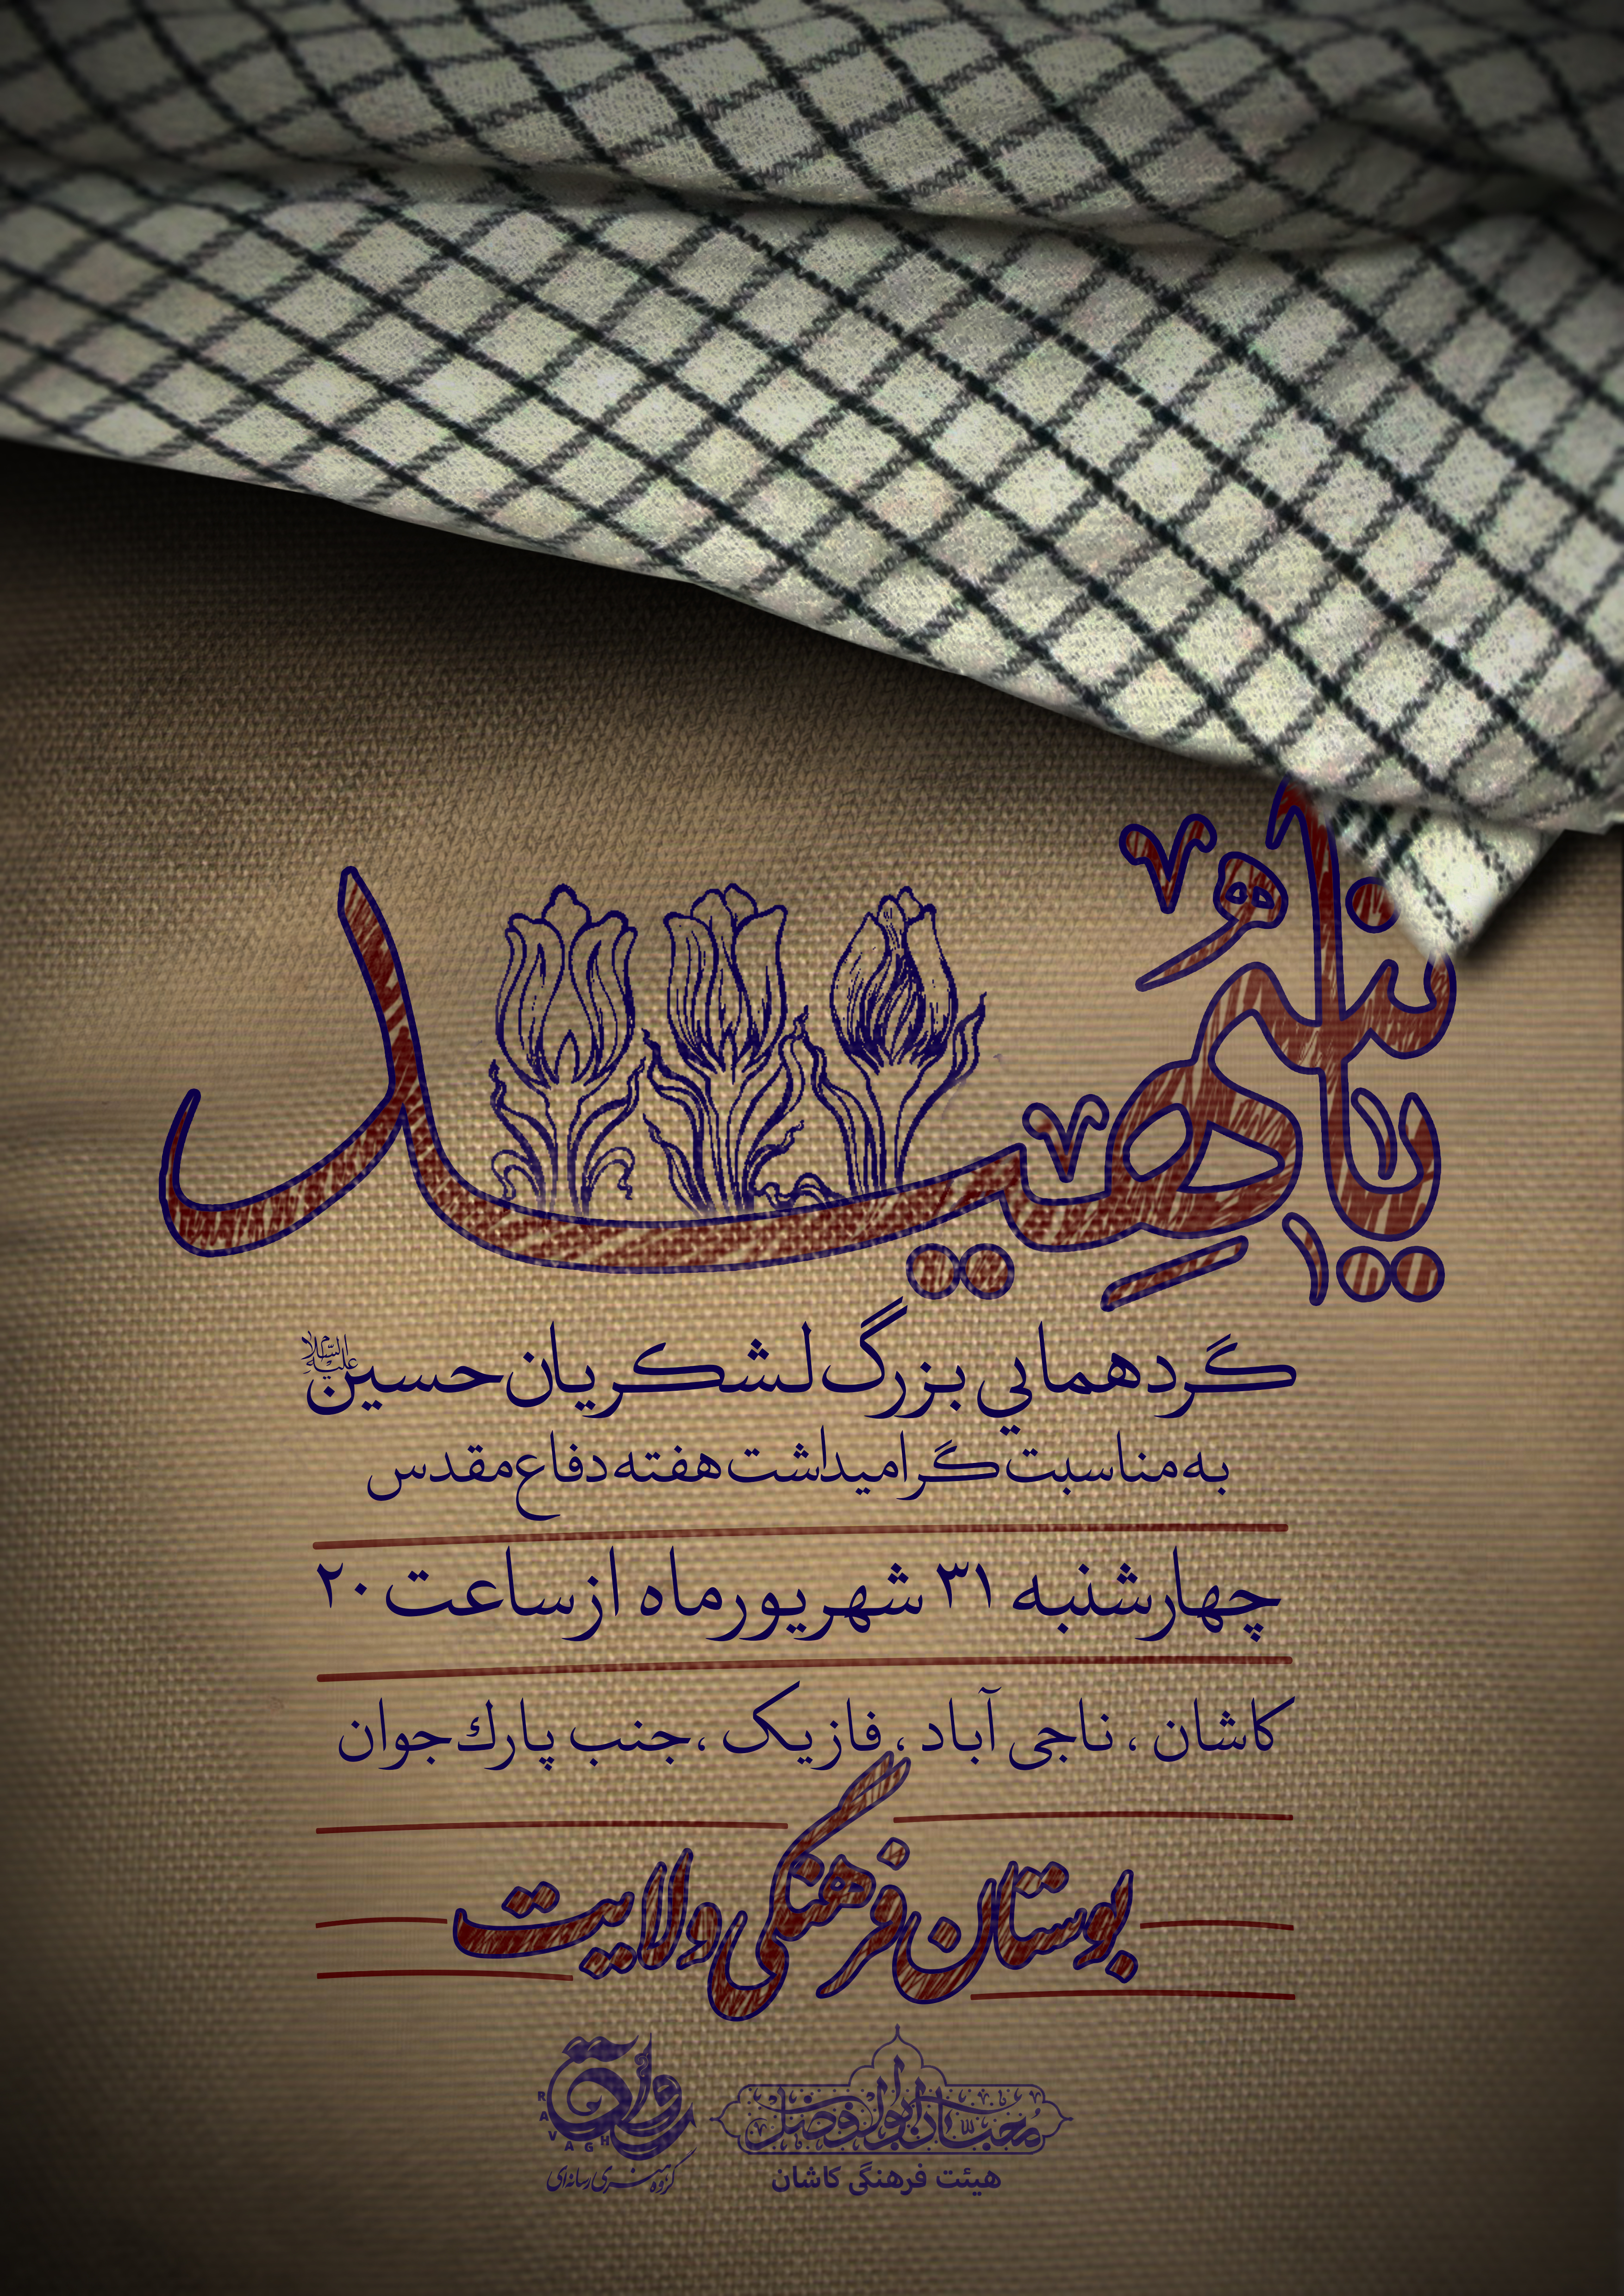 یا شهید
گردهمایی بزرگ لشکریان حسین علیه السلام
به مناسبت گرامیداشت هفته دفاع مقدس
چهارشنبه ۳۱ شهریور ماه از ساعت ۲۰
کاشان ، ناجی آباد ، فاز یک ، جنب پارک جوان
بوستان فرهنگی ولایت
محبان ابوالفضل
هیئت فرهنگی کاشان
رواق
RAVAGH
گروه هنری رسانه‌ای